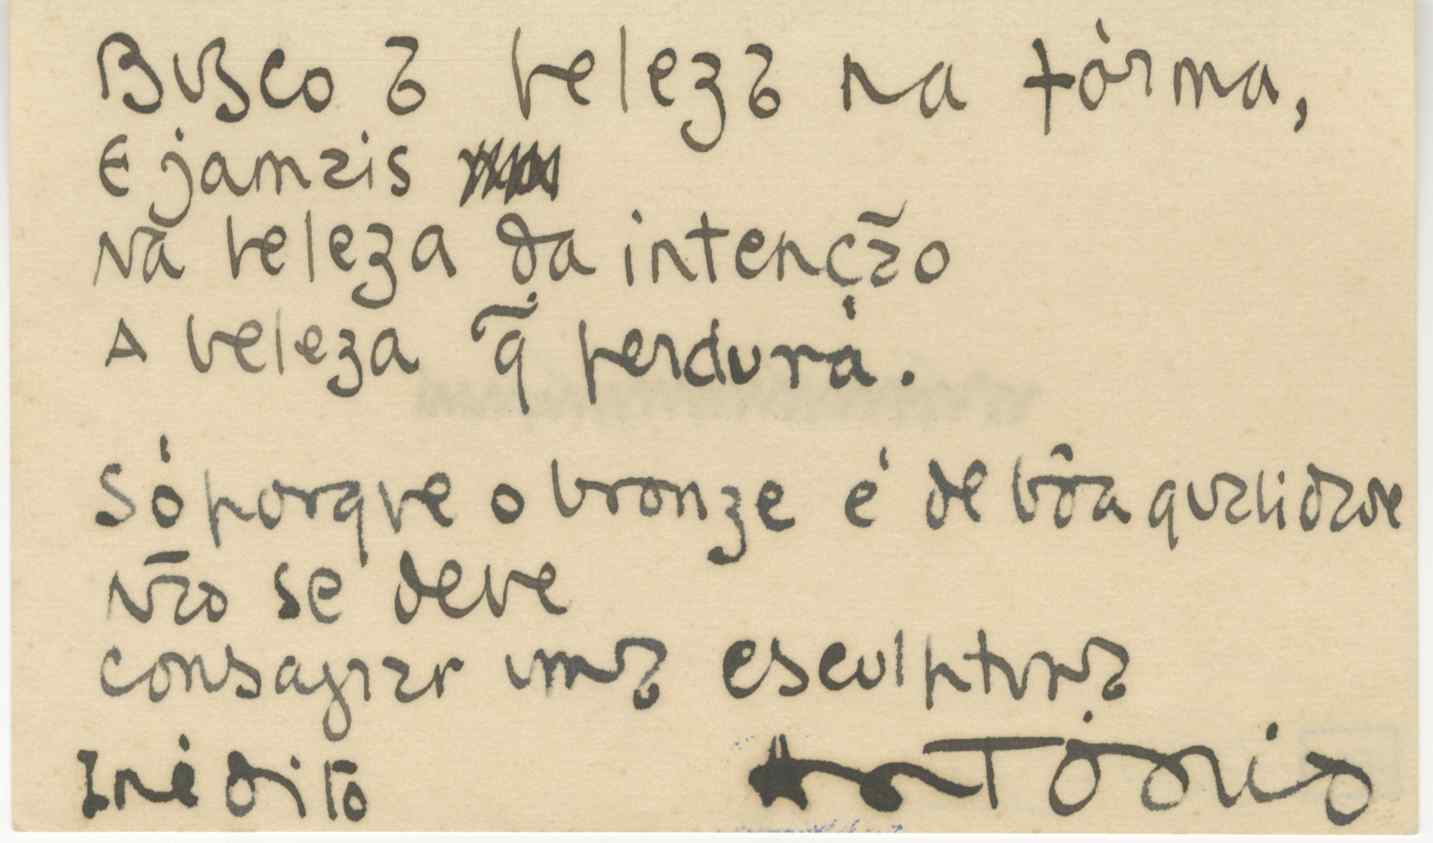 Busco a beleza na fórma,
E jamais
Na beleza da intenção
A beleza q̃ perdura.
Só porque o bronze é de bôa qualidade
não se deve
consagrar uma esculptura
Inédito António